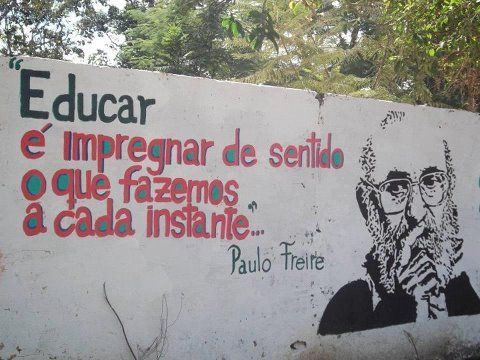 "Educar
é impregnar de sentido
o que fazemos
a cada instante..."
Paulo Freire